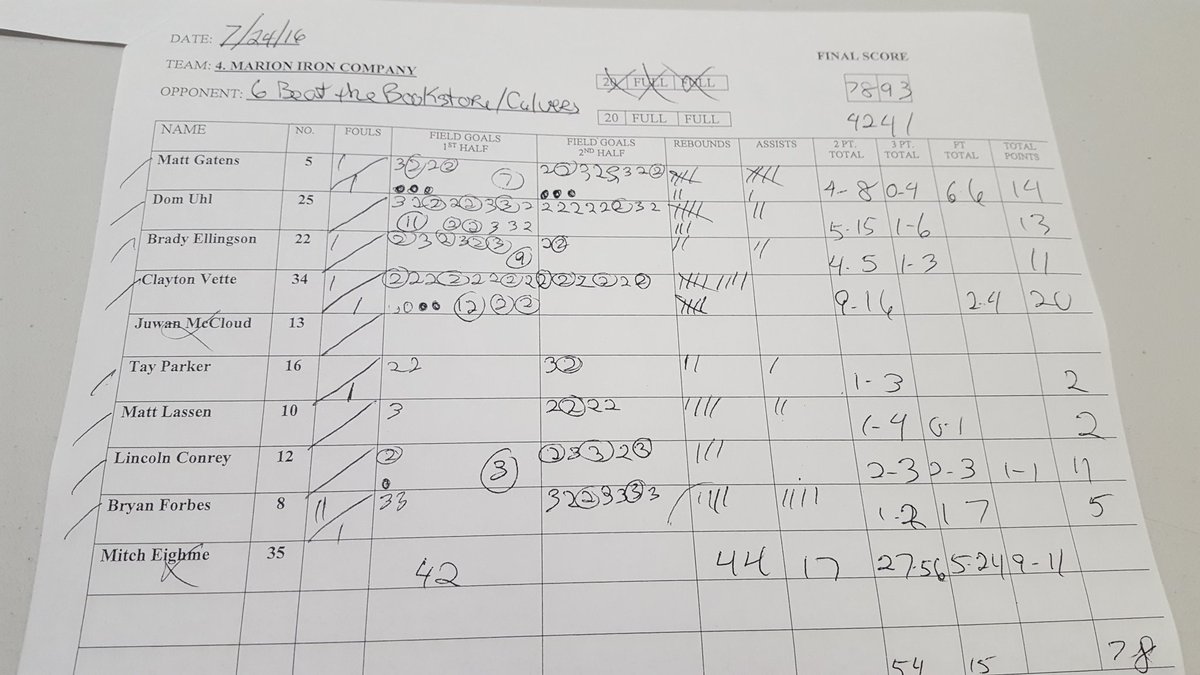 DATE: 7/24/16
TEAM: 4. MARION IRON COMPANY
OPPONENT: 6 Beat the Bookstore/Culvers
FINAL SCORE
20 FULL FULL
78 93
20 FULL FULL
42 41
NAME NO. FOULS FIELD GOALS 1ST HALF FIELD GOALS 2ND HALF REBOUNDS ASSISTS 2 PT. TOTAL 3 PT. TOTAL FT TOTAL TOTAL POINTS
Matt Gatens 5 3222 7 4-8 0-4 6-6 14
Dom Uhl 25 11 22332 22222232 5-15 1-6 13
Brady Ellingson 22 232323 9 22 4-5 1-3 11
Clayton Vette 34 12 22 9-16 2-4 20
Juwan McCloud 13
Tay Parker 16 22 32 1-3 2
Matt Lassen 10 3 2222 1-4 0-1 2
Lincoln Conrey 12 2 3 23323 2-3 2-3 1-1 11
Bryan Forbes 8 33 3223333 1-2 1 7 5
Mitch Eighme 35
42 44 17 27-56 5-24 9-11
54 15 78